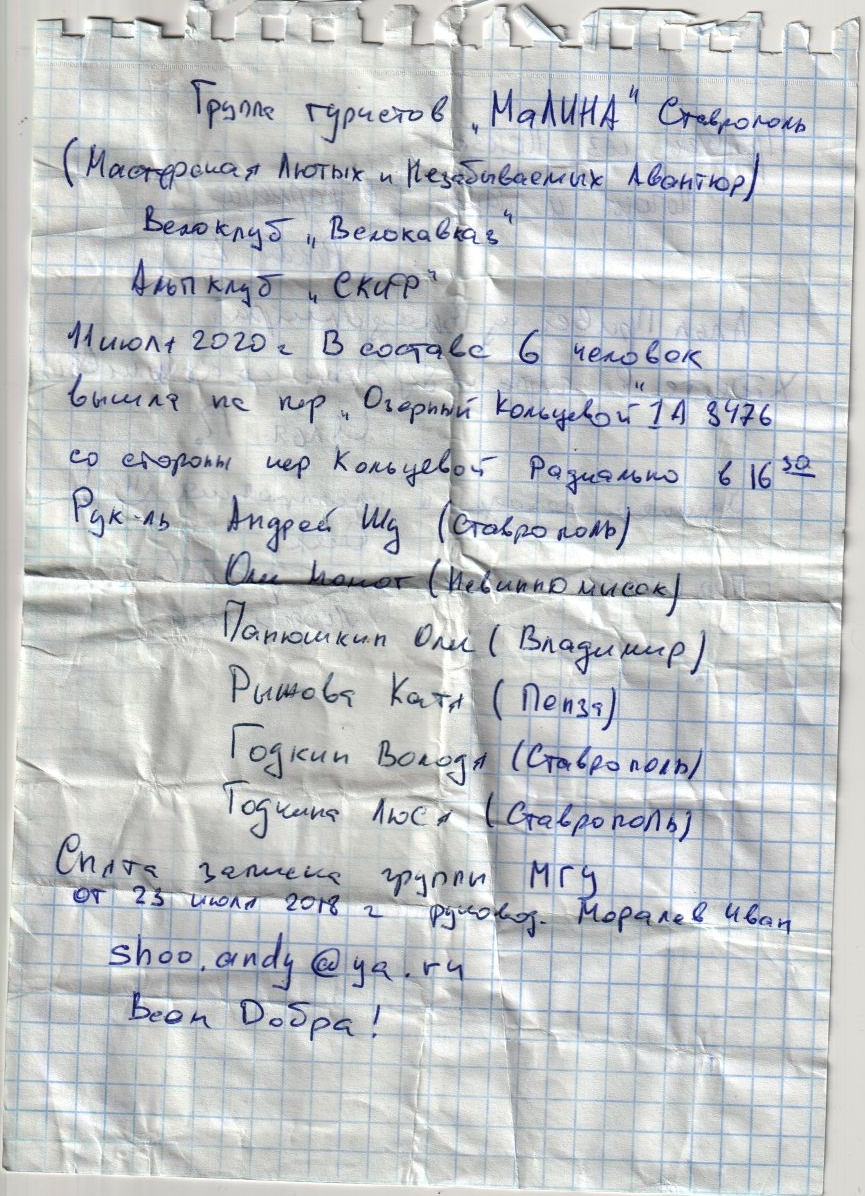 Группа туристов "МаЛИНА" Ставрополь
(Мастерская Лютых и Незабываемых Авантюр)
Велоклуб "Велокавказ"
Альпклуб "СКИФ"
11 июля 2020 г В составе 6 человек
вышла на пер "Озерный Кольцевой" 1А 3476
со стороны пер Кольцевой Радиально в 16 30
Рук-ль Андрей Шу (Ставрополь)
Оля (Невинномысск)
Панюшкин Оля (Владимир)
Рыжова Катя (Пенза)
Годкин Володя (Ставрополь)
Годкина Люся (Ставрополь)
Снята записка группы МГУ
от 23 июля 2018 г руковод. Моралев Иван
shoo.andy@ya.ru
Всем Добра!